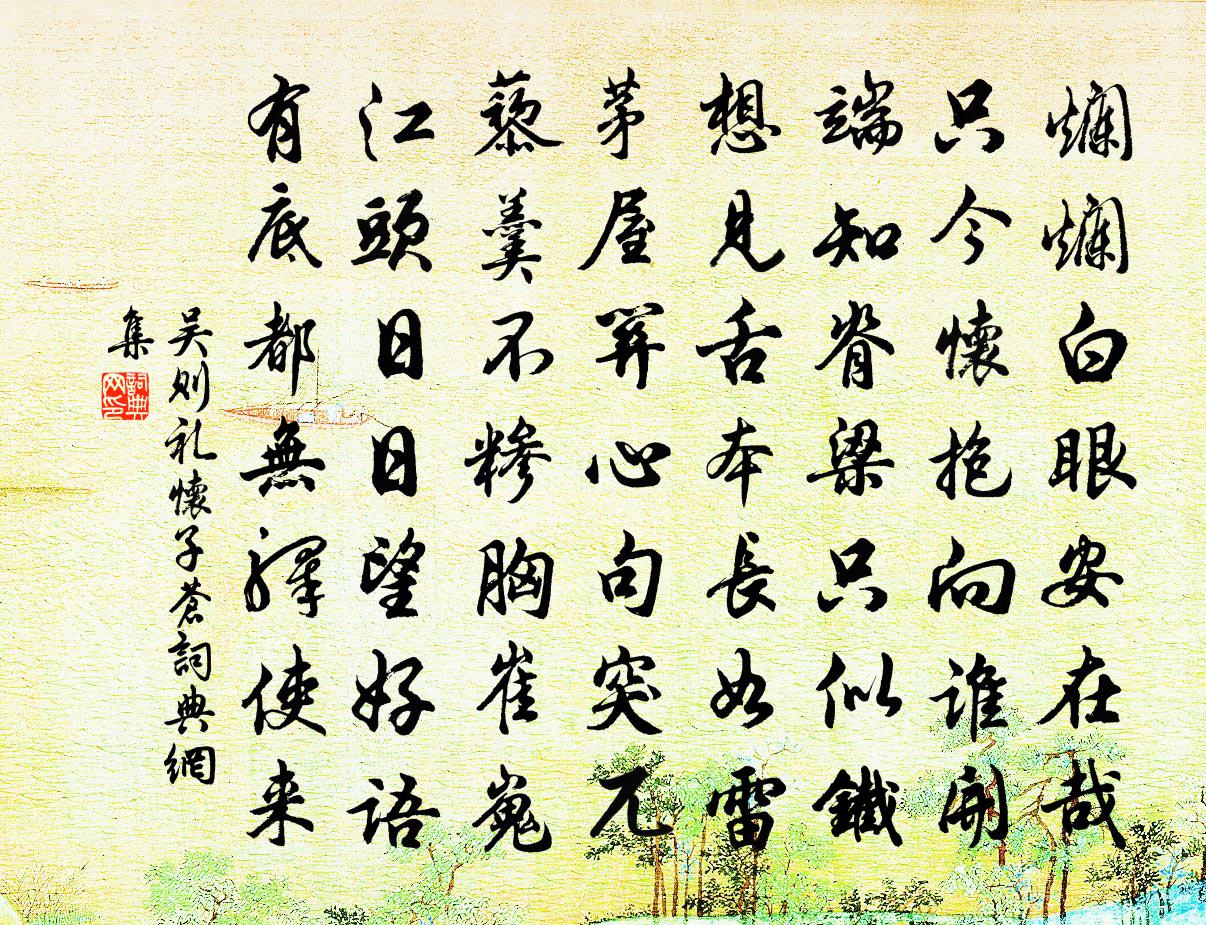 爛爛白眼安在哉
只今懷抱向誰開
端知脊梁只似鐵
想見舌本長如雷
茅屋關心句突兀
藜羹不糝胸崔嵬
江頭日日望好語
有底都無驛使来
吴则礼懷子蒼詞典網
集
詞典
网印